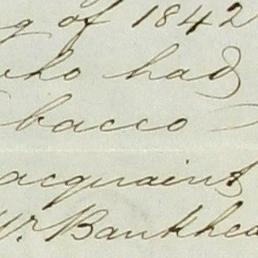 g of 1842
who had
bacco
acquaint
Mr. Bankhea